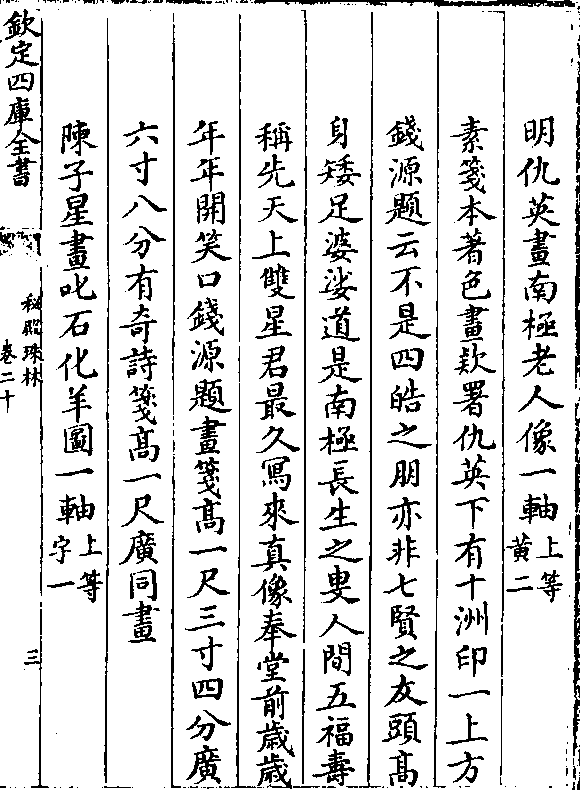 明仇英畫南極老人像一軸上等黃二
素箋本著色畫欵署仇英下有十洲印一上方
錢源題云不是四皓之朋亦非七賢之友頭高
身矮足婆娑道是南極長生之叟人間五福壽
稱先天上雙星君最久寫來真像奉堂前歲歲
年年開笑口錢源題畫箋高一尺三寸四分廣
六寸八分有奇詩箋高一尺廣同畫
陳子星畫叱石化羊圖一軸上等字一
欽定四庫全書
秘殿珠林
卷二十
三